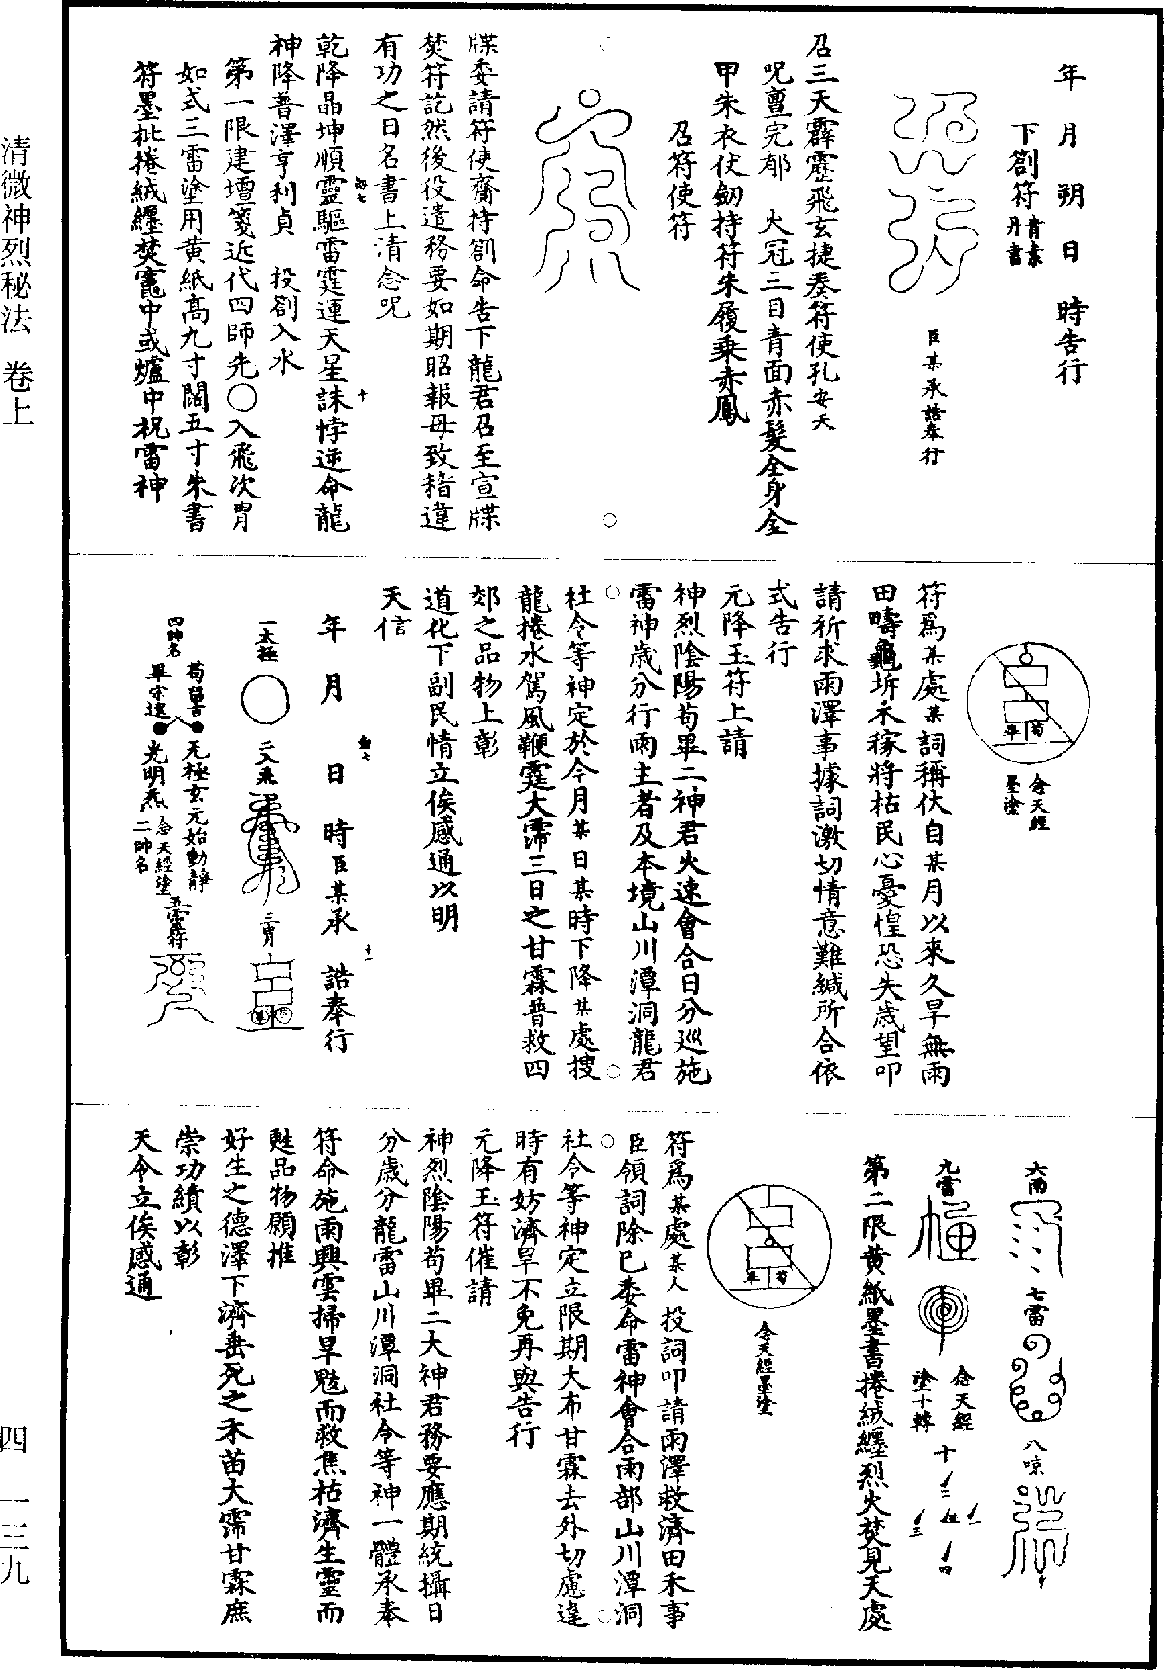 年　月　朔　日　時告行
下劄符青素丹書
臣某承誥奉行
召三天霹靂飛玄捷奏符使孔安天
呪亶完郁　火冠三目青面赤髮全身金
甲朱衣仗劒持符朱履乗赤鳳
召符使符
牒委請符使齎持劄命告下龍君召至宣牒
焚符訖然後役遣務要如期昭報毋致稽違
有功之日名書上清念呪
乾降晶坤順靈驅雷霆運天星誅悖逆命龍
神降普澤亨利貞　投劄入水
第一限建壇箋近代四師先○入飛次胃
如式三雷塗用黄紙高九寸闊五寸朱書
符墨批捲絨纏焚竈中或爐中祝雷神
念天經
墨塗
符爲某處某詞稱伏自某月以來久旱無雨
田疇龜坼禾稼將枯民心憂惶恐失歲望叩
請祈求雨澤事據詞激切情意難緘所合依
式告行
元降玉符上請
神烈陰陽荀畢二神君火速會合日分巡施
雷神歲分行雨主者及本境山川潭洞龍君
社令等神定於今月某日某時下降某處搜
龍捲水駕風鞭霆大霈三日之甘霖普救四
郊之品物上彰
道化下副民情立俟感通以明
天信
年　月　日　時臣某承　誥奉行
一太極
二入飛
三胃
四帥名
荀留吉
畢宗遠
无極玄元始動靜
光明炁
念天經塗
二帥名
五雷符
六雨
七雷
八唵
九雷
念天經
塗十轉
第二限黄紙墨書捲絨纏烈火焚見天處
荀
畢
念天經墨塗
符爲某處某人投詞叩請雨澤救濟田禾事
臣領詞除已委命雷神會合雨部山川潭洞
社令等神定立限期大布甘霖去外切慮違
時有妨濟旱不免再與告行
元降玉符催請
神烈陰陽荀畢二大神君務要應期統攝日
分歲分龍雷山川潭洞社令等神一體承奉
符命施雨興雲掃旱魃而救焦枯濟生靈而
甦品物願推
好生之德澤下濟垂死之禾苗大霈甘霖庶
崇功績以彰
天令立俟感通
清微神烈秘法　卷上
四　一三九